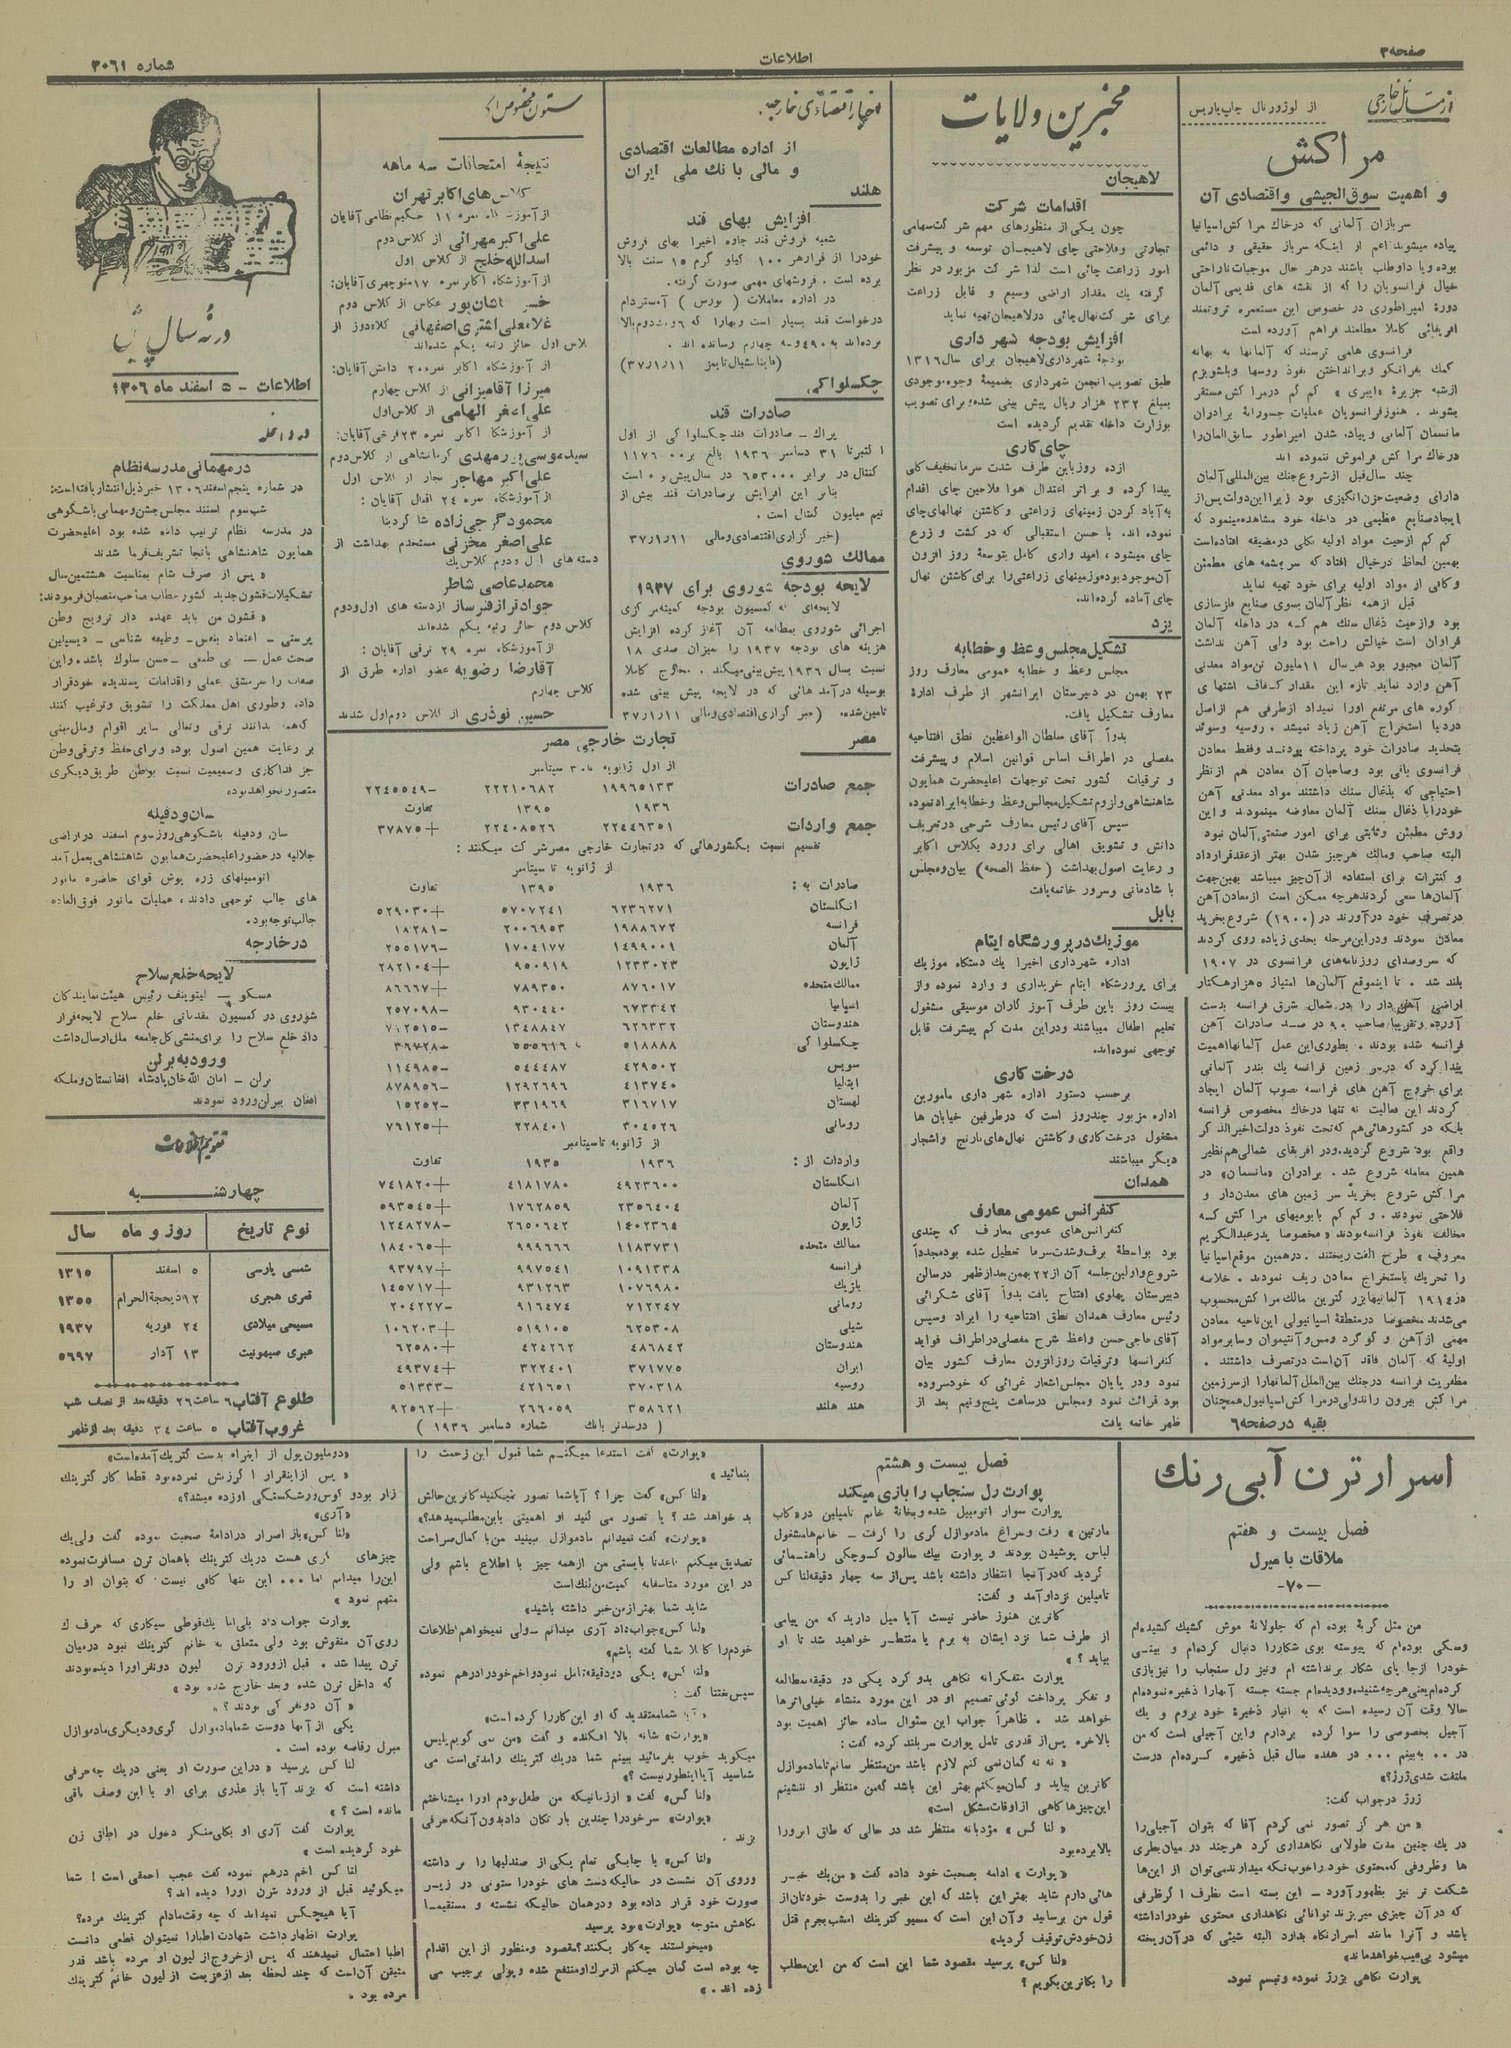 صفحه ۳
اطلاعات
شماره ۳۰۶۱
از لوژورنال چاپ پاریس
مراکش
و اهمیت سوق‌الجیشی و اقتصادی آن
سربازان آلمانی که درخاك مراکش اسپانیا
پیاده میشوند اعم از اینکه سرباز حقیقی و دائمی
بوده ویا داوطلب باشند درهر حال موجبات ناراحتی
خیال فرانسویان را که از نقشه های قدیمی آلمان
دورهٔ امپراطوری در خصوص این مستعمره ثروتمند
افریقائی کاملا مطلعند فراهم آورده است
فرانسوی هامی ترسند که آلمانها به بهانه
کمك بفرانکو وبرانداختن نفوذ روسها وبلشویزم
ازشبه جزیرهٔ «ایبری» کم کم درمراکش مستقر
بشوند . هنوزفرانسویان عملیات جسورانهٔ برادران
درخاك مراکش فراموش ننموده اند
چند سال قبل ازشروع جنك بین‌المللی آلمان
دارای وضعیت حزن‌انگیزی بود زیرا این دولت پس‌از
ایجادصنایع عظیمی در داخله خود مشاهده‌مینمود که
کم کم ازحیث مواد اولیه بکلی درمضیقه افتاده است
بهمین لحاظ درخیال افتاد که سرچشمه های مطمئن
وکافی از مواد اولیه برای خود تهیه نماید
قبل ازهمه نظر آلمان بسوی صنایع فلزسازی
بود وازحیث ذغال سنك هم که در داخله آلمان
فراوان است خیالش راحت بود ولی آهن نداشت
آلمان مجبور بود هرسال ۱۱ ملیون تن‌مواد معدنی
آهن وارد نماید تازه این مقدار کفاف اشتهای
کوره های مرتفع اورا نمیداد ازطرفی هم ازاصل
دردنیا استخراج آهن زیاد نمیشد . روسیه وسوئد
بتحدید صادرات خود پرداخته بودند وفقط معادن
فرانسوی باقی بود وصاحبان آن معادن هم ازنظر
احتیاجی که بذغال سنك داشتند مواد معدنی آهن
خودرابا ذغال سنك آلمان معاوضه مینمودند واین
روش مطمئن وثابتی برای امور صنعتی آلمان نبود
البته صاحب ومالك هرچیز شدن بهتر ازعقدقرارداد
و کنترات برای استفاده از آن‌چیز میباشد بهمین‌جهت
آلمان‌ها سعی کردندهرچه ممکن است ازمعادن آهن
درتصرف خود درآورند در (۱۹۰۰) شروع بخرید
معادن نمودند ودراین‌مرحله بحدی زیاده روی کردند
که سروصدای روزنامه‌های فرانسوی در ۱۹۰۷
بلند شد . تا اینموقع آلمان‌ها امتیاز ۵ هزارهکتار
اراضی آهن دار را در شمال شرق فرانسه بدست
آورده وتقریبا صاحب ۹۰ در صد صادرات آهن
فرانسه شده بودند . بطوری‌این عمل آلمانها اهمیت
پیدا کرد که درسر زمین فرانسه یك بندر آلمانی
برای خروج آهن های فرانسه بصوب آلمان ایجاد
کردند این فعالیت نه تنها درخاك مخصوص فرانسه
بلکه در کشورهائی هم که‌تحت نفوذ دولت اخیرالذکر
واقع بود شروع گردید.ودر افریقای شمالی‌هم‌نظیر
همین معامله شروع شد . برادران «مانسمان» در
مراکش شروع بخرید سر زمین های معدن‌دار و
فلاحتی نمودند . و کم کم بابومیهای مراکش که
مخالف نفوذ فرانسه بودند «مخصوصا پدرعبدالکریم
معروف» طرح الفت ریختند . درهمین موقع اسپانیا
را تحریك باستخراج معادن ریف نمودند . خلاصه
در ۱۹۱٤ آلمانیهابزرگترین مالك مراکش‌محسوب
می‌شدند مخصوصا درمنطقه اسپانیولی این‌ناحیه معادن
مهمی ازآهن و گوگرد ومس وآنتیموان وسایرمواد
اولیهٔ که آلمان فاقد آن‌است درتصرف داشتند .
مظفریت فرانسه درجنك بین‌الملل آلمانهارا ازسرزمین
مراکش بیرون راندولی‌درمراکش‌اسپانیول‌همچنان
بقیه درصفحه ۶
مخبرین ولایات
لاهیجان
اقدامات شرکت
چون یکی‌از منظورهای مهم شرکت‌سهامی
تجارتی وفلاحتی چای لاهیجان توسعه و پیشرفت
امور زراعت چائی است لذا شرکت مزبور در نظر
گرفته یك مقدار اراضی وسیع و قابل زراعت
برای شرکت‌نهال‌چائی درلاهیجان‌تهیه نماید
افزایش بودجه شهرداری
بودجهٔ شهرداری‌لاهیجان برای سال۱۳۱۶
طبق تصویب انجمن شهرداری بضمیمهٔ وجوه‌موجودی
بمبلغ ۲۳۲ هزار ریال پیش بینی شده‌وبرای تصویب
بوزارت داخله تقدیم گردیده است
چای‌کاری
ازده روزباین طرف شدت سرماتخفیف‌کلی
پیدا کرده و براثر اعتدال هوا فلاحین چای اقدام
به‌آباد کردن زمینهای زراعتی و کاشتن نهالهای‌چای
نموده اند. با حسن استقبالی که در کشت و زرع
چای میشود ، امید واری کامل بتوسعهٔ روز افزون
آن‌موجودبوده‌وزمینهای زراعتی را برای‌کاشتن نهال
چای‌آماده کرده‌اند.
یزد
تشکیل‌مجلس‌وعظ و خطابه
مجلس وعظ و خطابه عمومی معارف روز
۲۳ بهمن در دبیرستان ایرانشهر از طرف ادارهٔ
معارف تشکیل یافت.
بدواً آقای سلطان الواعظین نطق افتتاحیه
مفصلی در اطراف اساس قوانین اسلام و پیشرفت
و ترقیات کشور تحت توجهات اعلیحضرت همایون
شاهنشاهی‌ولزوم‌تشکیل‌مجالس‌وعظ وخطابه‌ایرادنموده
سپس آقای رئیس معارف شرحی درتعریف
دانش و تشویق اهالی برای ورود بکلاس اکابر
و رعایت اصول‌بهداشت (حفظ الصحه) بیان‌ومجلس
با شادمانی وسرور خاتمه‌یافت
بابل
موزیك در پرورشگاه ایتام
اداره شهرداری اخیرا یك دستگاه موزیك
برای پرورشگاه ایتام خریداری و وارد نموده واز
بیست روز باین طرف آموزگاران موسیقی مشغول
تعلیم اطفال میباشند ودراین مدت کم پیشرفت قابل
توجهی نموده‌اند.
درخت کاری
برحسب دستور اداره شهرداری مامورین
اداره مزبور چندروز است که درطرفین خیابان ها
مشغول درخت‌کاری وکاشتن نهال‌های‌نارنج واشجار
دیگر میباشند
همدان
کنفرانس عمومی معارف
کنفرانس‌های عمومی معارف که چندی
بود بواسطهٔ برف‌وشدت‌سرما تعطیل شده بودمجدداً
شروع‌واولین‌جلسه آن‌از۲۲بهمن‌بعدازظهر درسالن
دبیرستان پهلوی افتتاح یافت بدواً آقای شکرائی
رئیس معارف همدان نطق افتتاحیه را ایراد وسپس
آقای‌حاجی‌حسن واعظ شرح مفصلی‌دراطراف فواید
کنفرانسها وترقیات روزافزون معارف کشور بیان
نمود ودر پایان مجلس‌اشعار غرائی که خودسروده
بود قرائت نمود ومجلس درساعت پنج‌ونیم بعد از
ظهر خاتمه یافت
اخبار اقتصادی خارجه
از اداره مطالعات اقتصادی
و مالی بانك ملی ایران
هلند
افزایش بهای قند
شعبه فروش قند جاوه اخیرا بهای فروش
خودرا از قرارهر ۱۰۰ کیلو گرم ۱۵ سنت بالا
برده است . فروشهای مهمی صورت گرفته.
در اداره معاملات (بورس) آمستردام
(فاینانشیال‌تایمز ۳۷/۱/۱۱)
چکسلواکی
صادرات قند
پراك ـ صادرات قندچکسلواکی از اول
اکتبرتا ۳۱ دسامبر ۱۹۳۶ بالغ بر ۱۱۷۶۰۰۰
کنتال در برابر ۶۵۳۰۰۰ در سال‌پیش‌وده است
بنابر این افزایش برصادرات قند بیش از
نیم میلیون کنتال است .
(خبرگزاری اقتصادی‌ومالی ۳۷/۱/۱۱)
ممالك شوروی
لایحه بودجه شوروی برای ۱۹۳۷
لایحه‌ای که کمسیون بودجه کمیته‌مرکزی
اجرائی شوروی بمطالعه آن آغاز کرده افزایش
هزینه های بودجه ۱۹۳۷ را بمیزان صدی ۱۸
نسبت بسال ۱۹۳۶ پیش‌بینی‌میکند . مخارج کاملا
بوسیله درآمدهائی که در لایحه پیش بینی شده
تامین‌شده. (خبرگزاری‌اقتصادی‌ومالی ۳۷/۱/۱۱)
مصر
تجارت خارجی مصر
از اول ژانویه تا۳۰ سپتامبر
جمع صادرات ۱۹۹۶۵۱۳۳ ۲۲۲۱۰۶۸۲ −۲۲٤۵۵٤۹
۱۹۳۶ ۱۳۹۵ تفاوت
جمع واردات ۲۲٤٤۶۳۵۱ ۲۲٤۰۸۵۲۶ +۳۷۸۷۵
تقسیم نسبت بکشورهائی که درتجارت خارجی مصرشرکت میکنند :
از ژانویه تا سپتامبر
صادرات به : ۱۹۳۶ ۱۳۹۵ تفاوت
انگلستان ۶۲۳۶۲۷۱ ۵۷۰۷۲٤۱ +۵۲۹۰۳۰
فرانسه ۱۹۸۸۶۷۲ ۲۰۰۶۹۵۳ −۱۸۲۸۱
آلمان ۱٤۹۹۰۰۱ ۱۷۰٤۱۷۷ −۲۵۵۱۷۶
ژاپون ۱۲۳۳۰۲۳ ۹۵۰۹۱۹ +۲۸۲۱۰٤
ممالك متحده ۸۷۶۰۱۷ ۷۸۹۳۵۰ +۸۶۶۶۷
اسپانیا ۶۷۳۳٤۲ ۹۳۰٤٤۰ −۲۵۷۰۹۸
هندوستان ۶۲۶۳۳۲ ۱۳٤۸۸٤۷ −۷۲۲۵۱۵
چکسلواکی ۵۱۸۸۸۸ ۵۵۵۶۱۶ −۳۶۷۲۸
سویس ٤۲۹۵۰۲ ۵٤٤٤۸۷ −۱۱٤۹۸۵
ایتالیا ٤۱۳۷٤۰ ۱۲۹۲۶۹۶ −۸۷۸۹۵۶
لهستان ۳۱۶۷۱۷ ۳۳۱۹۶۹ −۱۵۲۵۲
رومانی ۳۰٤۵۲۶ ۲۲۸٤۰۱ +۷۶۱۲۵
از ژانویه تاسپتامبر
واردات از : ۱۹۳۶ ۱۹۳۵ تفاوت
انگلستان ٤۹۲۳۶۰۰ ٤۱۸۱۷۸۰ +۷٤۱۸۲۰
آلمان ۲۳۵۶٤۰٤ ۱۷۶۲۸۵۹ +۵۹۳۵٤۵
ژاپون ۱٤۰۲۳۶٤ ۲۶۵۰۶٤۲ −۱۲٤۸۲۷۸
ممالك متحده ۱۱۸۳۷۳۱ ۹۹۹۶۶۶ +۱۸٤۰۶۵
فرانسه ۱۰۹۱۳۳۸ ۹۹۷۵٤۱ +۹۳۷۹۷
بلژیك ۱۰۷۶۹۸۰ ۹۳۱۲۶۳ +۱٤۵۷۱۷
رومانی ۷۱۲۲٤۷ ۹۱۶٤۷٤ −۲۰٤۲۲۷
شیلی ۶۲۵۳۰۸ ۵۱۹۱۰۵ +۱۰۶۲۰۳
هندوستان ٤۸۶۸٤۲ ٤۲٤۲۶۲ +۶۲۵۸۰
ایران ۳۷۱۷۷۵ ۳۲۲٤۰۱ +٤۹۳۷٤
روسیه ۳۷۰۳۱۸ ٤۲۱۶۵۱ −۵۱۳۳۳
هند هلند ۳۵۸۶۲۱ ۲۶۶۰۵۹ +۹۲۵۶۲
(درسدنر بانك شماره دسامبر ۱۹۳۶)
نتیجهٔ امتحانات سه ماهه
کلاس‌های اکابر تهران
از آموزشگاه نمره ۱۱ حکیم نظامی آقایان
علی‌اکبر مهرائی از کلاس دوم
اسدالله خلج از کلاس اول
از آموزشگاه اکابر نمره ۱۷ منوچهری آقایان:
غلامعلی‌اشتری‌اصفهانی کلاه‌دوز از
کلاس اول حائز رتبه یکم شده‌اند
از آموزشگاه اکابر نمره ۲۰۰ دانش آقایان:
میرزا آقامیزانی از کلاس چهارم
علی اصغر الهامی از کلاس‌اول
از آموزشگاه اکابر نمره ۲۳ فرخی آقایان:
سیدموسی‌پورمهدی کرمانشاهی از کلاس‌دوم
علی‌اکبر مهاجر نجار از کلاس اول
از آموزشگاه نمره ۲٤ اقبال آقایان :
محمودگرجی‌زاده
علی‌اصغر مخزنی مستخدم بهداشت از
دسته های اول ودوم کلاس‌یك
محمدعاصی شاطر
جواد ترازفنرساز ازدسته های اول‌ودوم
کلاس دوم حائز رتبه یکم شده‌اند
از آموزشگاه نمره ۲۹ ترقی آقایان :
آقارضا رضویه عضو اداره طرق از
کلاس چهارم
حسین نوذری از کلاس دوم‌اول شدند
در نه سال پیش
اطلاعات - ۵ اسفند ماه ۱۳۰۶
در داخله
درمهمانی‌مدرسه‌نظام
در شماره پنجم‌اسفند ۱۳۰۶ خبرذیل‌انتشاریافته‌است:
شب‌سوم اسفند مجلس‌جشن‌ومهمانی‌باشکوهی
در مدرسه نظام ترتیب داده شده بود اعلیحضرت
همایون شاهنشاهی بآنجا تشریف‌فرما شدند
« پس از صرف شام بمناسبت هشتمین‌سال
تشکیلات‌قشون‌جدید کشورخطاب بصاحب‌منصبان‌فرمودند:
« قشون من باید عهده دار ترویج وطن
پرستی ـ اعتماد بنفس ـ وظیفه شناسی ـ دیسیپلین
صحت عمل ـ بی طمعی ـ حسن سلوك باشد، واین
صفات را سرمشق عملی واقدامات پسندیده خودقرار
داده وطوری اهل مملکت را تشویق وترغیب کنند
که‌همه بدانند ترقی وتعالی سایر اقوام وملل‌مبنی
بر رعایت همین اصول بوده و برای‌حفظ وترقی‌وطن
جز فداکاری و صمیمیت نسبت بوطن طریق‌دیگری
متصور نخواهدبود»
سان‌ودفیله
سان ودفیله باشکوهی‌روزسوم اسفند دراراضی
جلالیه درحضوراعلیحضرت‌همایون شاهنشاهی‌بعمل‌آمد
اتومبیلهای زره پوش قوای حاضره مانور
های جالب توجهی دادند ، عملیات مانور فوق‌العاده
جالب‌توجه‌بود.
درخارجه
لایحه خلع سلاح
مسکو ـ لیتوینف رئیس هیئت‌نمایندگان
شوروی در کمسیون مقدماتی خلع سلاح لایحه‌قرار
داد خلع سلاح را برای‌منشی‌کل‌جامعه ملل‌ارسال‌داشت
ورود به برلن
برلن ـ امان الله‌خان‌پادشاه افغانستان‌وملکه
افغان ببرلن‌ورود نمودند
تقویم اطلاعات
چهارشنبه
نوع تاریخ روز و ماه سال
شمسی پارسی ۵ اسفند ۱۳۱۵
قمری هجری ۱۲ ذیحجةالحرام ۱۳۵۵
مسیحی میلادی ۲٤ فوریه ۱۹۳۷
عبری صیهونیت ۱۳ آدار ۵۶۹۷
طلوع آفتاب ۶ ساعت ۲۶ دقیقه‌بعد از نصف شب
غروب آفتاب ۵ ساعت ۳٤ دقیقه بعد از ظهر
اسرار ترن آبی رنك
فصل بیست و هفتم
ملاقات با میرل
ـ ۷۰ ـ
من مثل گربهٔ بوده ام که جلولانهٔ موش کشیك کشیده‌ام
وسگی بوده‌ام که پیوسته بوی شکاررا دنبال کرده‌ام و بینی
خودرا ازجا پای شکار برنداشته ام ونیز رل سنجاب را نیزبازی
کرده‌ام‌یعنی‌هرچه‌شنیده‌ودیده‌ام جسته جسته آنهارا ذخیره نموده‌ام
حالا وقت آن رسیده است که به انبار ذخیرهٔ خود بروم و یك
آجیل بخصوصی را سوا کرده بردارم واین آجیلی است که من
در .. به‌بینم ... در هفده سال قبل ذخیره کرده‌ام درست
ملتفت شدی‌ژرژ؟»
ژرژ درجواب گفت:
« من هرگز تصور نمی کردم آقا که بتوان آجیلی‌را
در یك چنین مدت طولانی نگاهداری کرد هرچند در میان‌بطری
ها وظروفی که‌محتوی خودراخوب‌نگه میدارندمی‌توان از این‌ها
شگفت تر نیز بظهورآورد ـ این بسته است بظرف اگرظرفی
که درآن چیزی میریزند توانائی نگاهداری محتوی خودراداشته
باشد و آنرا مانند اسرارنگاه بدارد البته شیئی که درآن‌ریخته
میشود بی‌عیب‌خواهدماند»
پوارت نگاهی بژرژ نموده وتبسم نمود.
فصل بیست و هشتم
پوارت رل سنجاب را بازی میکند
پوارت سوار اتومبیل شده وبخانهٔ خانم تامپلین در«کاپ
مارتین» رفت وسراغ مادموازل گری را گرفت ـ خانم‌هامشغول
لباس پوشیدن بودند و پوارت بیك سالون کوچکی راهنمائی
گردید که‌درآنجا انتظار داشته باشد پس‌از سه چهار دقیقه‌لناکس
تامپلین نزداوآمد و گفت:
کاترین هنوز حاضر نیست آیا میل دارید که من پیامی
از طرف شما نزد ایشان به برم یا منتظر خواهید شد تا او
بیاید ؟»
پوارت متفکرانه نگاهی بدو کرد یکی دو دقیقه‌بمطالعه
و تفکر پرداخت گوئی تصمیم او در این مورد منشاء خیلی‌اثرها
خواهد شد . ظاهراً جواب این سئوال ساده حائز اهمیت بود
بالاخره پس‌از قدری تامل پوارت سربلند کرده گفت:
« نه نه گمان‌نمی کنم لازم باشد من‌منتظر بمانم‌تامادموازل
کاترین بیاید و گمان‌میکنم بهتر این باشد که‌من منتظر او ننشینم
این‌چیزها گاهی ازاوقات‌مشکل است»
« لناکس» مؤدبانه منتظر شد در حالی که طاق ابرورا
بالابرده‌بود
« پوارت» ادامه بصحبت خود داده گفت « من‌یك خبر
هائی دارم شاید بهتر این باشد که این خبر را بدوست خودتان‌از
قول من برسانید وآن این است که مسیو کترینك امشب‌بجرم قتل
زن‌خودش‌توقیف گردید»
«لناکس» پرسید مقصود شما این است که من این‌مطلب
را بکاترین‌بگویم ؟
«پوارت» گفت استدعا میکنم شما قبول این زحمت را
بنمائید»
«لناکس» گفت چرا ؟ آیاشما تصور میکنیدکاترین‌حالش
بد خواهد شد ؟ یا تصور می کنید او اهمیتی باین‌مطلب‌میدهد؟»
«پوارت» گفت نمیدانم مادموازل ببینید من‌با کمال‌صراحت
تصدیق‌میکنم قاعدتا بایستی من ازهمه چیز با اطلاع باشم ولی
در این مورد متاسفانه کمیت‌من‌لنك‌است
شاید شما بهترازمن‌خبر داشته باشید»
«لناکس»جواب‌داد آری میدانم ـ ولی نمیخواهم‌اطلاعات
خودم‌را کاملا بشما گفته باشم»
«لناکس» یکی دودقیقه‌تامل نمودواخم‌خودرادرهم نموده
سپس‌بغتتا گفت :
« آیا شمامعتقدید که او این‌کاررا کرده است»
«پوارت» شانه بالا افکنده و گفت «من نمی گویم‌پلیس
میگوید خوب بفرمائید ببینم شما دریك کترینك رامدتی‌است می
شناسید آیا اینطورنیست؟»
«لنا کس» گفت «اززمانیکه من طفل‌بودم اورا میشناختم
«پوارت» سرخودرا چندین بار تکان دادبدون آنکه‌حرفی
بزند .
«لناکس» با چابکی تمام یکی‌از صندلیها را بر داشته
وروی آن نشست در حالیکه‌دست های خودراستونی در زیر
صورت خود قرار داده بود ودرهمان حالیکه نشسته و مستقیما
نگاهش متوجه «پوارت»بود پرسید
«میخواستند چه‌کار بکنند؟مقصود ومنظور از این اقدام
چه بوده است گمان میکنم ازمرك‌اومنتفع شده وپولی برجیب می
زده اند . »
«دوملیون‌پول از اینراه بدست کترینك‌آمده‌است»
« پس ازاینقرار اگرزنش نمرده‌بود قطعا کار کترینك
زار بودو کوس‌ورشکستگی اوزده میشد؟»
«آری»
«لنا کس»باز اصرار درادامهٔ صحبت نموده گفت ولی‌یك
چیزهای دیگری هست دریك کترینك باهمان ترن مسافرت‌نموده
این‌را میدانم اما ... این تنها کافی نیست که بتوان او را
متهم نمود »
پوارت جواب داد بلی‌اما یك‌قوطی سیگاری که حرف ك
روی‌آن منقوش بود ولی متعلق به خانم کترینك نبود درمیان
ترن پیدا شد . قبل ازورود ترن لیون دونفراورا دیده‌بودند
که داخل ترن شده وبعد خارج شده بود »
« آن دونفر کی بودند ؟ »
یکی از آنها دوست شمامادموازل گری‌ودیگری‌مادموازل
میرل رقاصه بوده است .
لناکس پرسید «دراین صورت او یعنی دریك چه‌حرفی
داشته است که بزند آیا باز عذری برای او با این وصف باقی
مانده است ؟ »
پوارت گفت آری او بکلی‌منکر دخول در اطاق زن
خود گردیده است »
لناکس اخم درهم نموده گفت عجب احمقی است ! شما
میگوئید قبل از ورود ترن اورا دیده اند؟
آیا هیچکس نمیداند که چه وقت‌مادام کترینك مرده؟
پوارت اظهارداشت شهادت اطبارا نمیتوان قطعی دانست
اطبا احتمال نمیدهند که پس ازخروج‌از‌لیون او مرده باشد قدر
متیقن آن‌است که چند لحظه بعد ازعزیمت از لیون خانم کترینك
مرده بود .